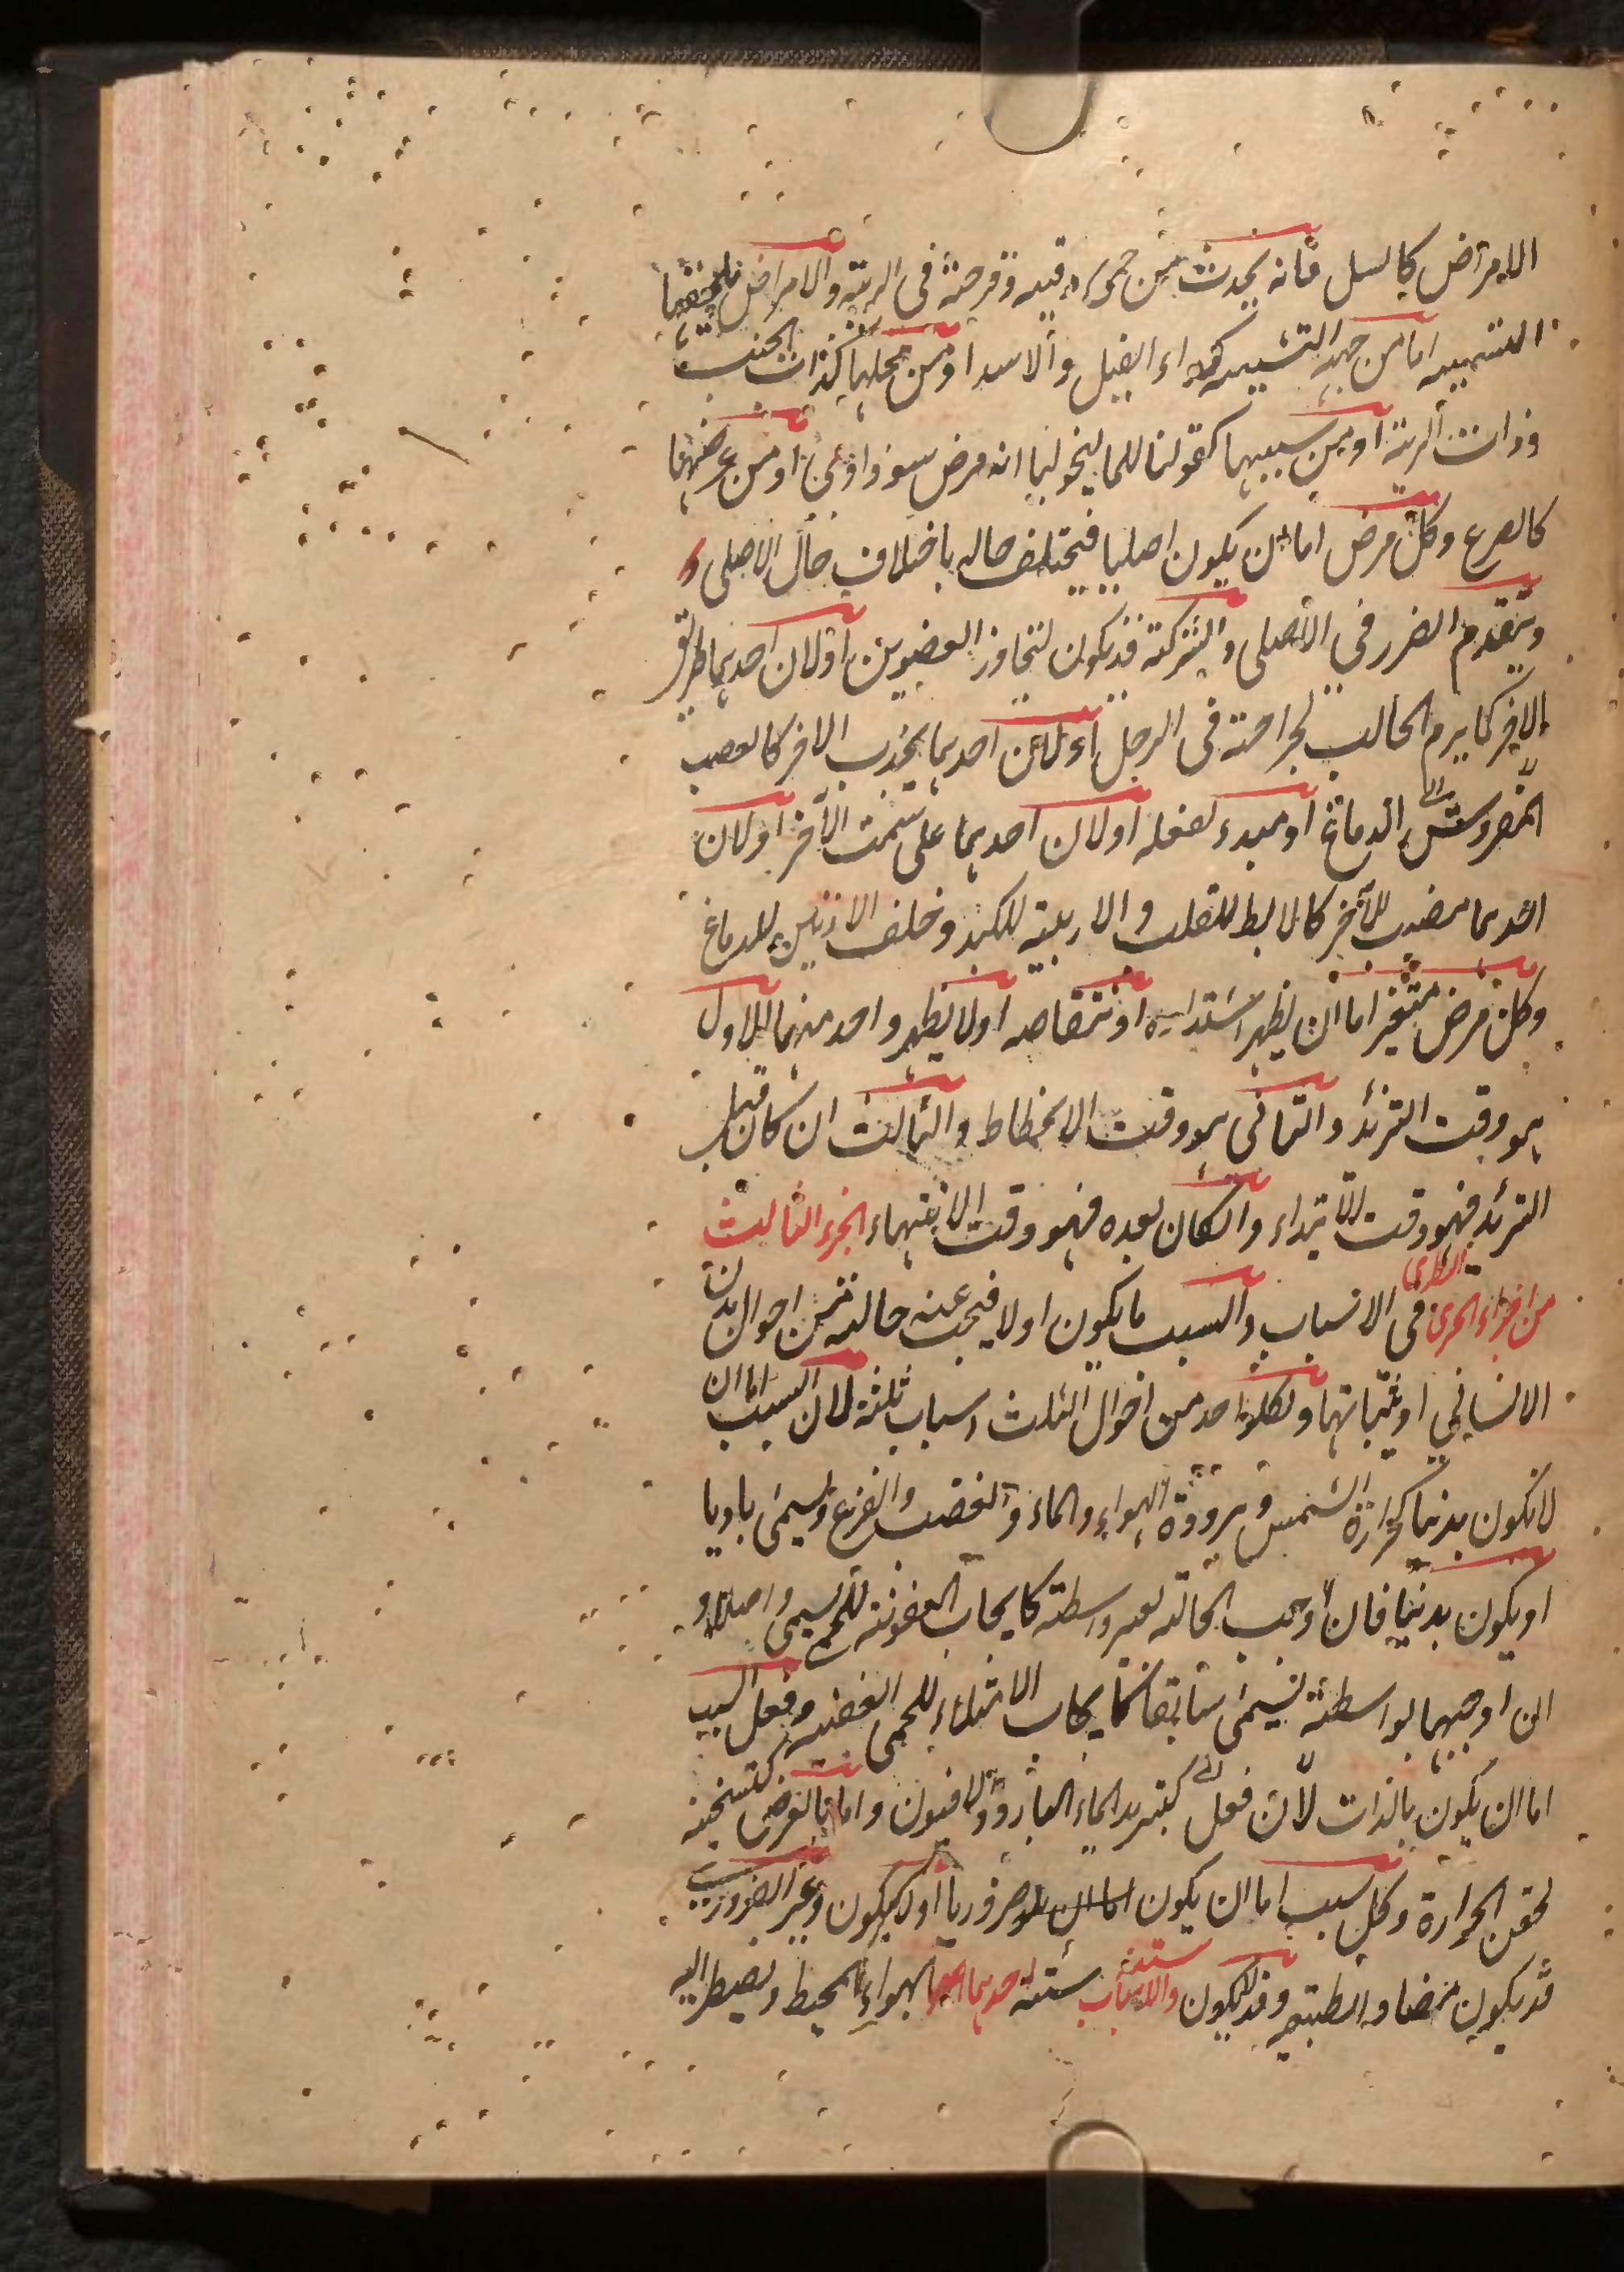 الامراض كالسل فانه يحدث من حمى دقيه وقرحة فى الرية والامراض يلحقها
التسميه اما من جهه التشبيه كداء الفيل والاسد او من محلها كذات الجنب
وذات الرية او من سببها كقولنا للماليخوليا انه مرض سوداوى او من عرضها
كالصرع وكل مرض اما ان يكون اصليا فيختلف حاله باختلاف حال الاصلى و
ويتقدم الضرر فى الاصلى والشركة قد يكون لتجاوز العضوين او لان احديهما طريق
الاخر كما يرم الحالب لجراحة فى الرجل او لان احديهما يخدم الاخر كالعصب
الدماغ او مبدء لفعله او لان احديهما على سمت الاخر او لان
احديهما مصب للاخر كالابط للقلب والاربية للكبد وخلف الاذنين للدماغ
وكل مرض متغير اما ان يظهر اشتداده او تنقاصه او لا يظهر واحد منهما الاول
هو وقت التزئد والثانى هو وقت الانحطاط والثالث ان كان قبل
التزئد فهو وقت الابتداء وان كان بعده فهو وقت الانتهاء الجزء الثالث
من اجزاء الجزء النظرى فى الاسباب والسبب ما يكون اولا فيجب عنه حالة من احوال بدن
الانسانى او ثباتها ولكل واحد من احوال الثلث اسباب ثلثة لان السبب اما ان
لا يكون بدنيا كحرارة الشمس وبرودة الهواء والماء والغضب والفزع ويسمى باديا
او يكون بدنيا فان اوجب الحالة بغير واسطة كايجاب العفونة للحمى يسمى واصلا و
ان اوجبها بواسطة يسمى سابقا كايجاب الامتلاء للحمى العفنه وفعل السبب
اما ان يكون بالذات لان فعل كتبريد الماء البارد والافيون واما بالعرض كتسخينه
لحقن الحرارة وكل سبب اما ان يكون ضروريا او لا يكون وغير الضرورى
قد يكون مضاد الطبيعه وقد لا يكون والاسباب ستة احديها الهواء المحيط ويضطر اليه